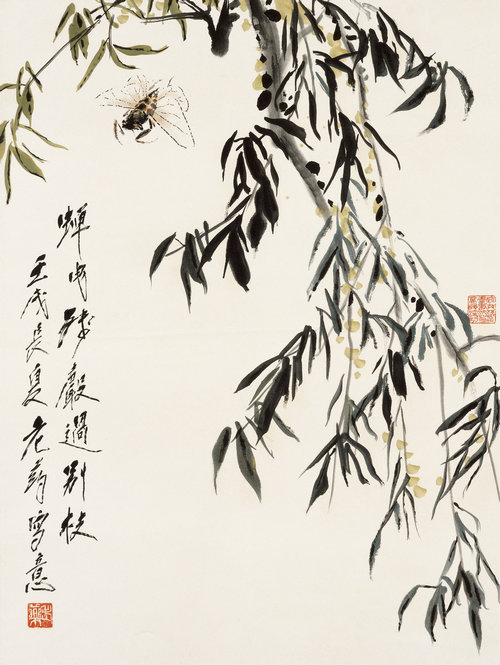 蟬曳殘聲過別枝
壬戌長夏老葯寫意